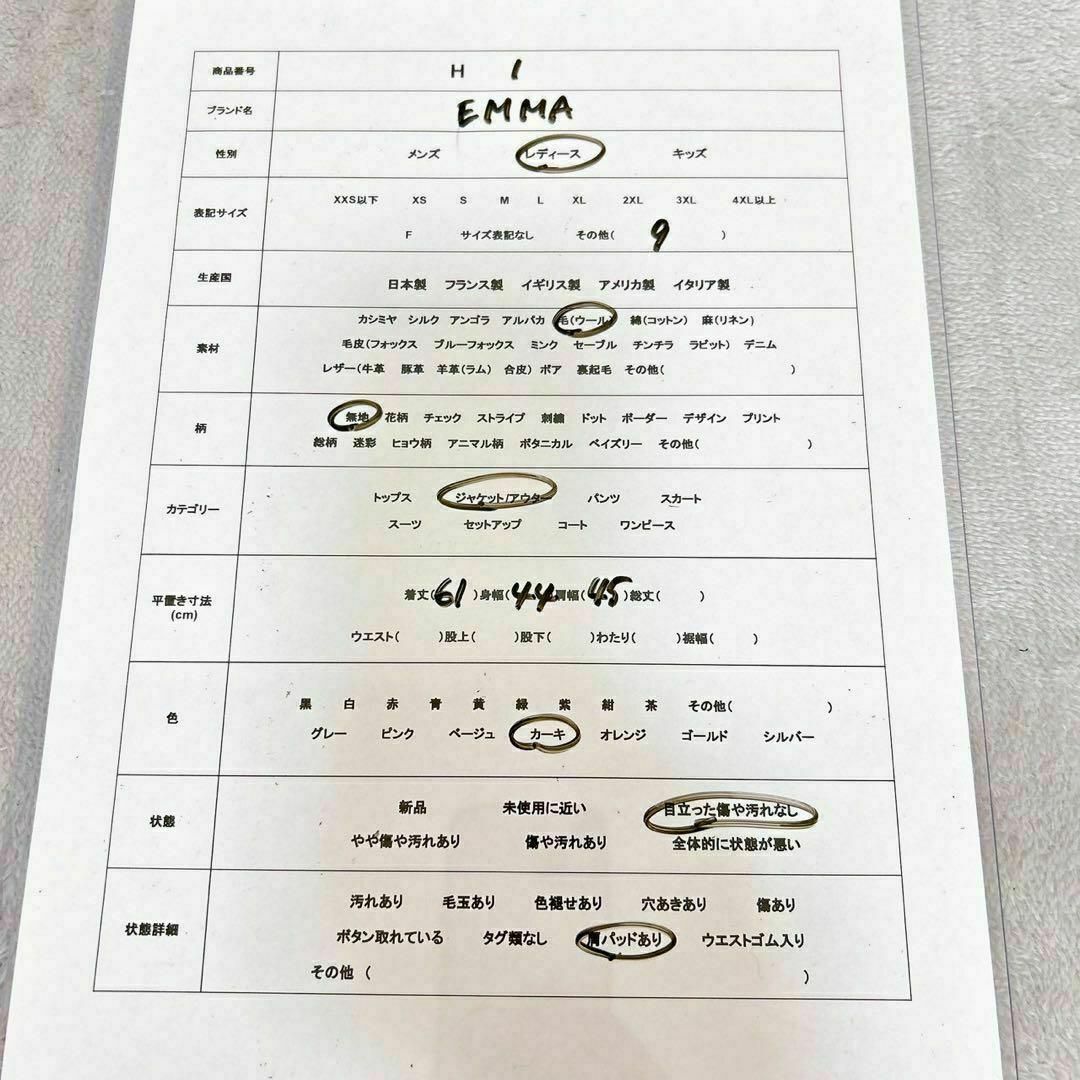 商品番号 H 1
ブランド名 EMMA
性別 メンズ レディース キッズ
表記サイズ
XXS以下 XS S M L XL 2XL 3XL 4XL以上
F サイズ表記なし その他( 9 )
生産国 日本製 フランス製 イギリス製 アメリカ製 イタリア製
素材
カシミヤ シルク アンゴラ アルパカ 毛(ウール) 綿(コットン) 麻(リネン)
毛皮(フォックス ブルーフォックス ミンク セーブル チンチラ ラビット) デニム
レザー(牛革 豚革 羊革(ラム) 合皮) ボア 裏起毛 その他( )
柄
無地 花柄 チェック ストライプ 刺繍 ドット ボーダー デザイン プリント
総柄 迷彩 ヒョウ柄 アニマル柄 ボタニカル ペイズリー その他( )
カテゴリー
トップス ジャケット/アウター パンツ スカート
スーツ セットアップ コート ワンピース
平置き寸法
(cm)
着丈(61)身幅(44)肩幅(45)総丈( )
ウエスト( )股上( )股下( )わたり( )裾幅( )
色
黒 白 赤 青 黄 緑 紫 紺 茶 その他( )
グレー ピンク ベージュ カーキ オレンジ ゴールド シルバー
状態
新品 未使用に近い 目立った傷や汚れなし
やや傷や汚れあり 傷や汚れあり 全体的に状態が悪い
状態詳細
汚れあり 毛玉あり 色褪せあり 穴あきあり 傷あり
ボタン取れている タグ類なし 肩パッドあり ウエストゴム入り
その他 ( )